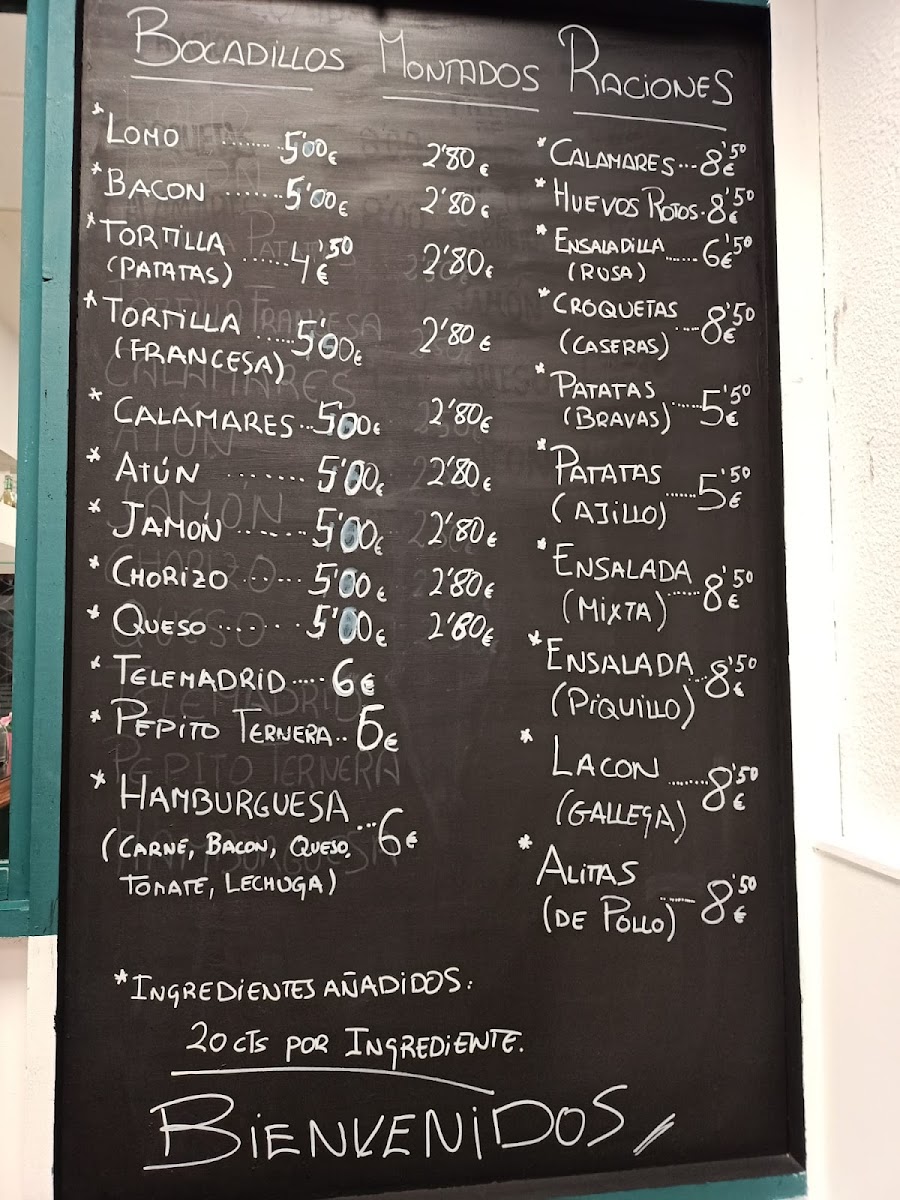 BOCADILLOS MONTADOS RACIONES
*LOMO ........ 5'00€ 2'80€
*BACON ...... 5'00€ 2'80€
*TORTILLA
(PATATAS) ..... 4'50€ 2'80€
*TORTILLA
(FRANCESA) .... 5'00€ 2'80€
*CALAMARES... 5'00€ 2'80€
*ATÚN ........ 5'00€ 2'80€
*JAMÓN ....... 5'00€ 2'80€
*CHORIZO ...... 5'00€ 2'80€
*QUESO ....... 5'00€ 2'80€
*TELEMADRID .... 6€
*PEPITO TERNERA.. 6€
*HAMBURGUESA
(CARNE, BACON, QUESO, ... 6€
TOMATE, LECHUGA)
*CALAMARES... 8'50€
*HUEVOS ROTOS. 8'50€
*ENSALADILLA
(RUSA) ...... 6'50€
*CROQUETAS
(CASERAS) .... 8'50€
*PATATAS
(BRAVAS) ..... 5'50€
*PATATAS
(AJILLO) ...... 5'50€
*ENSALADA
(MIXTA) ..... 8'50€
*ENSALADA
(PIQUILLO) ... 8'50€
*LACON
(GALLEGA) ....... 8'50€
*ALITAS
(DE POLLO) ...... 8'50€
*INGREDIENTES AÑADIDOS:
20 CTS POR INGREDIENTE.
BIENVENIDOS